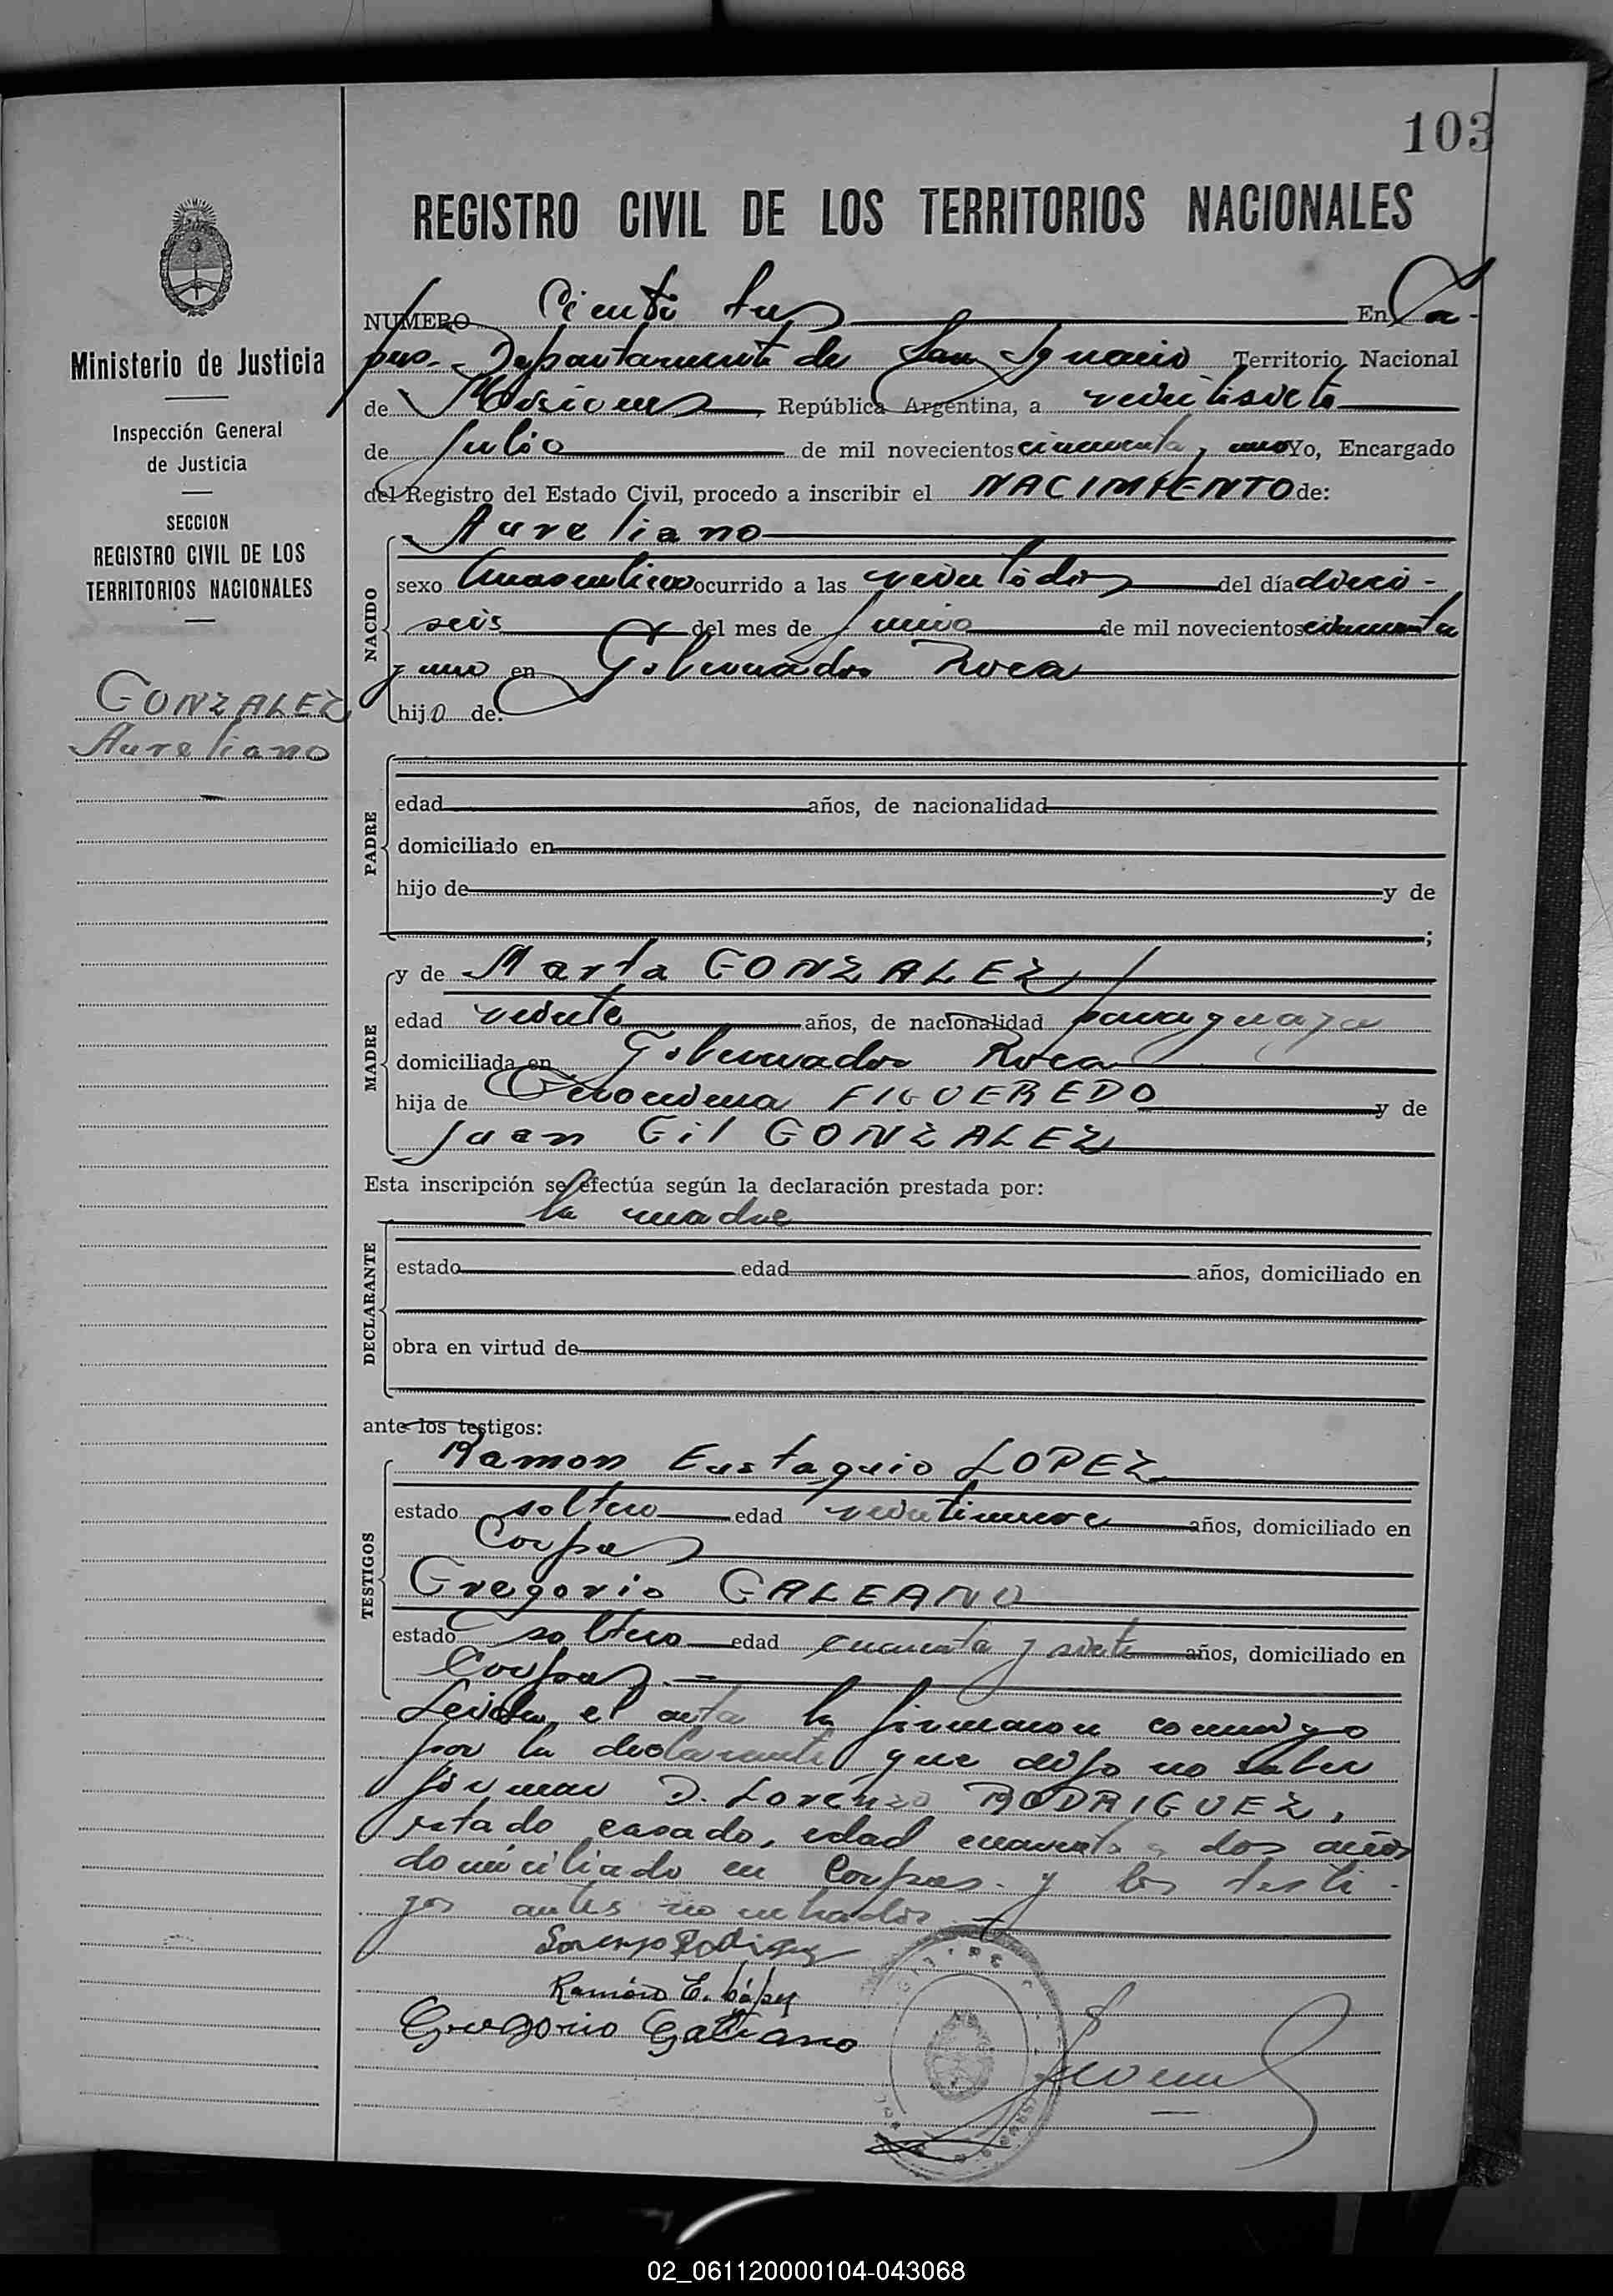 103
REGISTRO CIVIL DE LOS TERRITORIOS NACIONALES
Ministerio de Justicia
Inspección General
de Justicia
SECCION
REGISTRO CIVIL DE LOS
TERRITORIOS NACIONALES
GONZALEZ
Aureliano
NUMERO Ciento tres En Cor-
pus.- Departamento de San Ignacio Territorio Nacional
de Misiones, República Argentina, a veintisiete
de Julio de mil novecientos cincuenta y uno Yo, Encargado
del Registro del Estado Civil, procedo a inscribir el NACIMIENTO de:
NACIDO
Aureliano
sexo masculino ocurrido a las veintidos del día dieci-
seis del mes de Junio de mil novecientos cincuenta
y uno en Gobernador Roca
hijo de:
PADRE
edad años, de nacionalidad
domiciliado en
hijo de y de
;
MADRE
y de Marta GONZALEZ
edad veinte años, de nacionalidad paraguaya
domiciliada en Gobernador Roca
hija de Geronima FIGUEREDO y de
Juan Gil GONZALEZ
Esta inscripción se efectúa según la declaración prestada por:
DECLARANTE
la madre
estado edad años, domiciliado en
obra en virtud de
ante los testigos:
TESTIGOS
Ramon Eustaquio LOPEZ
estado soltero edad veintinueve años, domiciliado en
Corpus
Gregorio GALEANO
estado soltero edad cuarenta y siete años, domiciliado en
Corpus.=
Leida el acta la firmaron conmigo
por la declarante que dijo no saber
firmar D. Lorenzo RODRIGUEZ,
estado casado, edad cuarenta y dos años
domiciliado en Corpus.- y los testi-
gos antes nombrados.-
Lorenzo Rodriguez
Ramón E. López
Gregorio Galeano
02_061120000104-043068